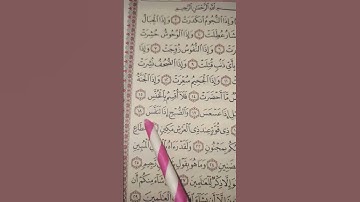 اللَّهِ الرَّحْمَٰنِ الرَّحِيمِ
وَإِذَا النُّجُومُ انكَدَرَتْ ٢ وَإِذَا الْجِبَالُ
عُطِّلَتْ ٤ وَإِذَا الْوُحُوشُ حُشِرَتْ
وَإِذَا النُّفُوسُ زُوِّجَتْ ٧ وَإِذَا
بِأَيِّ ذَنبٍ قُتِلَتْ ٩ وَإِذَا الصُّحُفُ نُشِرَتْ
وَإِذَا الْجَحِيمُ سُعِّرَتْ ١٢ وَإِذَا الْجَنَّةُ
أَحْضَرَتْ ١٤ فَلَا أُقْسِمُ بِالْخُنَّسِ
إِذَا عَسْعَسَ ١٧ وَالصُّبْحِ إِذَا تَنَفَّسَ ١٨
ذِي قُوَّةٍ عِندَ ذِي الْعَرْشِ مَكِينٍ ٢٠
بِمَجْنُونٍ ٢٢ وَلَقَدْ رَآهُ الْمُبِينِ
وَمَا هُوَ بِقَوْلِ رَّجِيمٍ
إِلَّا ذِكْرٌ لِّلْعَالَمِينَ ٢٧ شَاءَ مِنكُمْ أَن
الْعَالَمِينَ